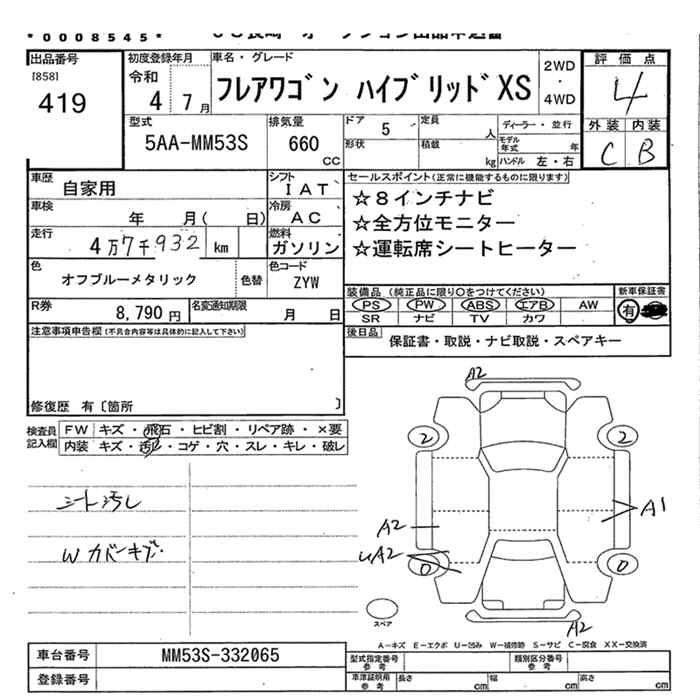 *0008545*
出品番号
[858]
419
初度登録年月
令和
4 7月
車名・グレード
フレアワゴン ハイブリッドXS
2WD
・
4WD
評価点
4
外装 内装
C B
型式
5AA-MM53S
排気量
660
CC
ドア 5
定員 人
形状
積載 kg
ディーラー・並行
モデル年式 年
ハンドル 左・右
車歴
自家用
シフト
IAT
車検
年 月( 日)
冷房
AC
走行
4万7千932 km
燃料
ガソリン
色
オフブルーメタリック
色替
色コード
ZYW
R券
8,790円
名変通知期限
月 日
セールスポイント(正常に機能するものに限ります)
☆8インチナビ
☆全方位モニター
☆運転席シートヒーター
装備品(純正品に限り○をつけてください)
PS PW ABS エアB AW
SR ナビ TV カワ
新車保証書
有
後日品
保証書・取説・ナビ取説・スペアキー
注意事項申告欄(不具合内容等は具体的に記入して下さい)
修復歴 有〔箇所 〕
検査員
記入欄
FW キズ・飛石・ヒビ割・リペア跡・×要
内装 キズ・汚レ・コゲ・穴・スレ・キレ・破レ
シート汚レ
Wカバーキズ・
A2
2 2
A1
A2
UA2
0 0
A2
スペア
A-キズ E-エクボ U-凹み W-補修跡 S-サビ C-腐食 XX-交換済
車台番号
MM53S-332065
登録番号
型式指定番号
参考
類別区分番号
参考
車庫証明用
参考
長さ cm
幅 cm
高さ cm